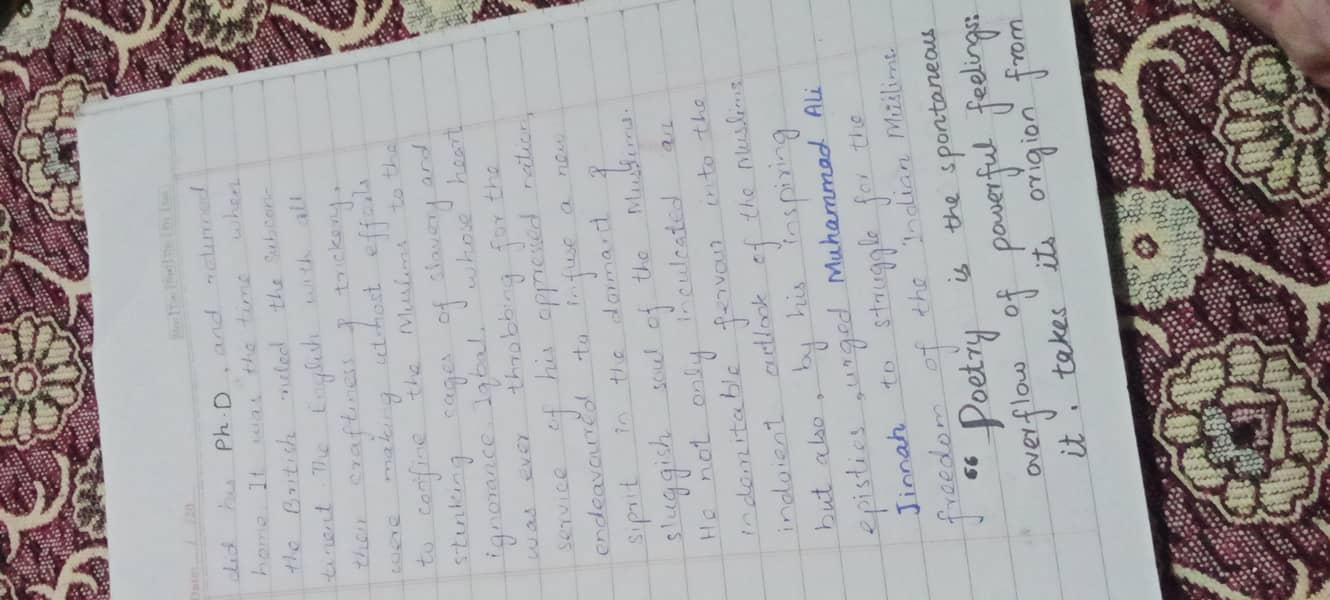 did his Ph.D, and returned
home. It was the time when
the British ruled the subcon-
tinent. The English with all
their craftiness & trickery,
were making utmost efforts
to confine the Muslims to the
stinking cages of slavery and
ignorance. Iqbal, whose heart
was ever throbbing for the
service of his oppressed nation,
endeavoured to infuse a new
siprit in the domart &
sluggish soul of the Muslims.
He not only inculcated an
indomitable fervour into the
indovient outlook of the muslims
but also, by his inspiring
epistles, urged Muhammed Ali
Jinnah to struggle for the
freedom of the indian Muslims.
“Poetry is the spontaneous
overflow of powerful feelings:
it takes its origion from